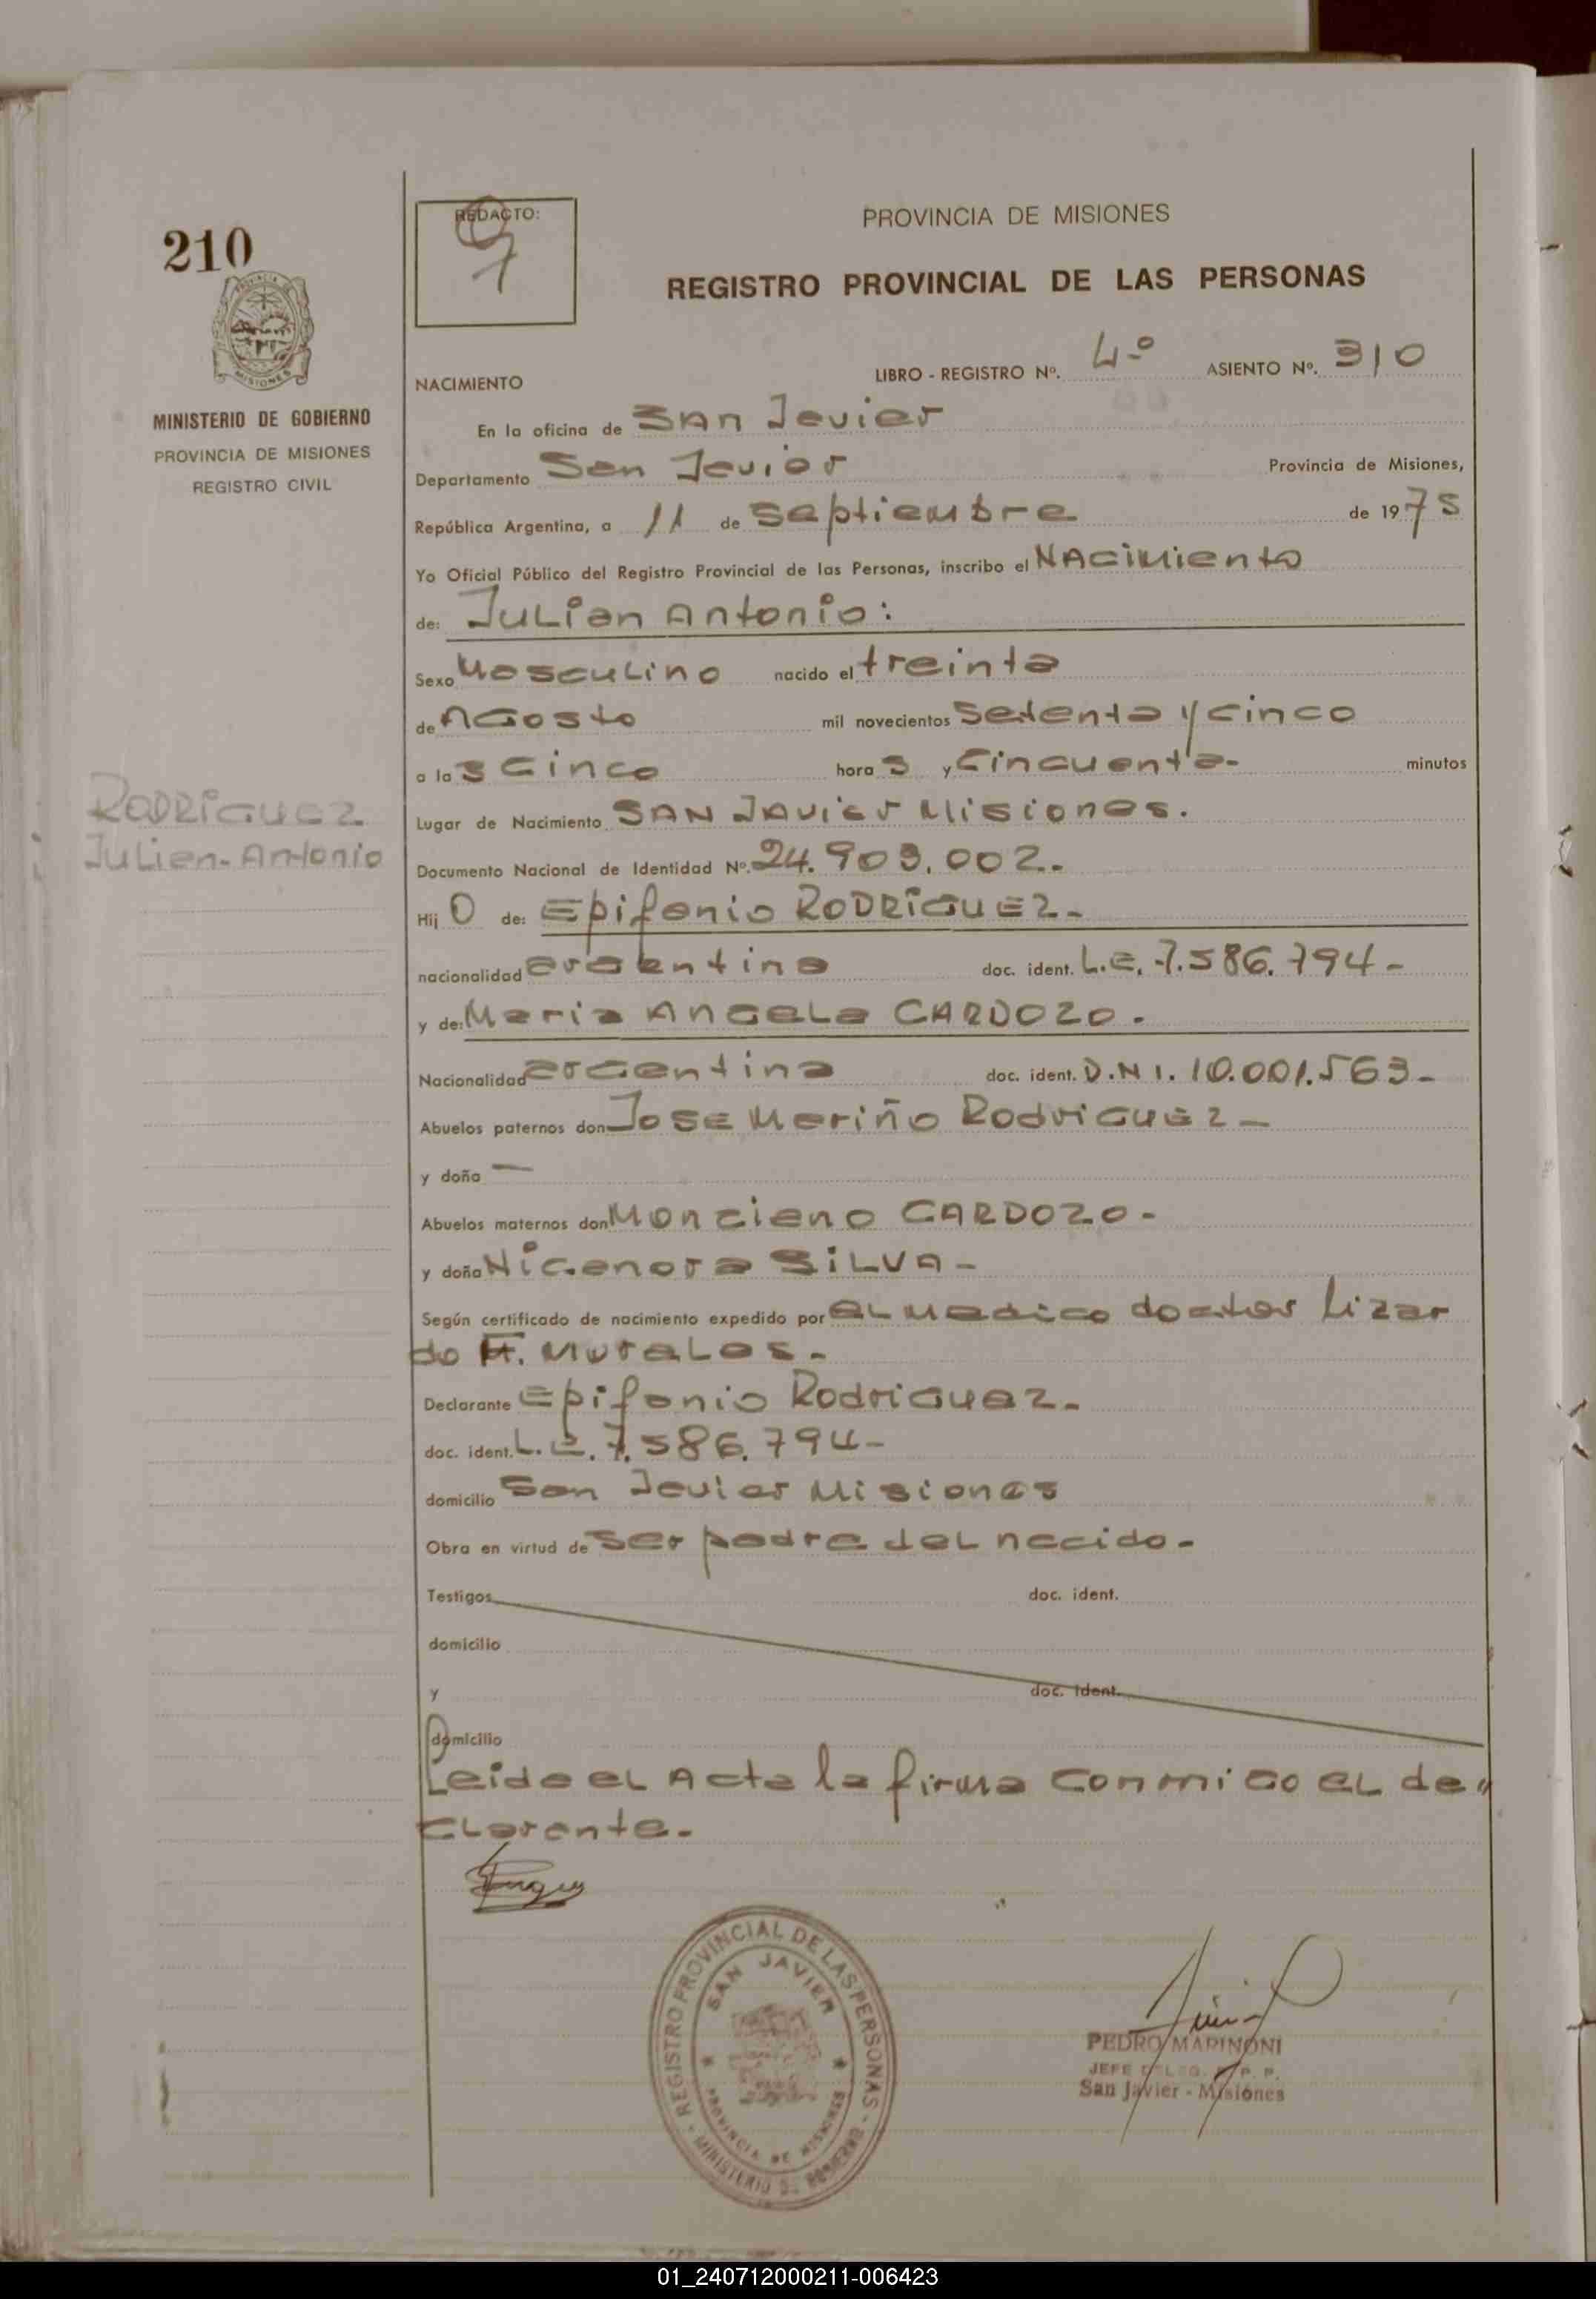 210
REDACTO:
PROVINCIA DE MISIONES
REGISTRO PROVINCIAL DE LAS PERSONAS
MINISTERIO DE GOBIERNO
PROVINCIA DE MISIONES
REGISTRO CIVIL
NACIMIENTO LIBRO - REGISTRO Nº. 4º ASIENTO Nº. 310
En la oficina de SAn Javier
Departamento San Javier Provincia de Misiones,
República Argentina, a 11 de septiembre de 1975
Yo Oficial Público del Registro Provincial de las Personas, inscribo el NAcimiento
de: JuLian Antonio:
Sexo Masculino nacido el treinta
de AGosto mil novecientos setenta y cinco
a las cinco horas y cincuenta- minutos
RODRÍGUEZ
JuLian-Antonio
Lugar de Nacimiento SAN JAvier Misiones.
Documento Nacional de Identidad Nº. 24.903.002.-
Hijo de: Epifanio RODRÍGUEZ-
nacionalidad argentina doc. ident. L.E. 7.586.794-
y de: Maria AngeLa CARDOZO.
Nacionalidad argentina doc. ident. D.N I. 10.001.563-
Abuelos paternos don Jose Mariño Rodriguez-
y doña —
Abuelos maternos don Monciano CARDOZO-
y doña Nicanora SiLVA-
Según certificado de nacimiento expedido por eL medico doctor Lizar
do F. MoraLes.-
Declarante Epifanio Rodriguez-
doc. ident. L.E. 7.586.794-
domicilio San Javier Misiones
Obra en virtud de ser padre deL nacido.-
Testigos doc. ident.
domicilio
y doc. ident.
domicilio
Leida eL Acta la firma conmigo eL de"
cLarante.-
REGISTRO PROVINCIAL DE LAS PERSONAS
SAN JAVIER
PROVINCIA DE MISIONES
MINISTERIO DE GOBIERNO
PEDRO MARINONI
JEFE DELEG. R. P. P.
San Javier - Misiones
01_240712000211-006423